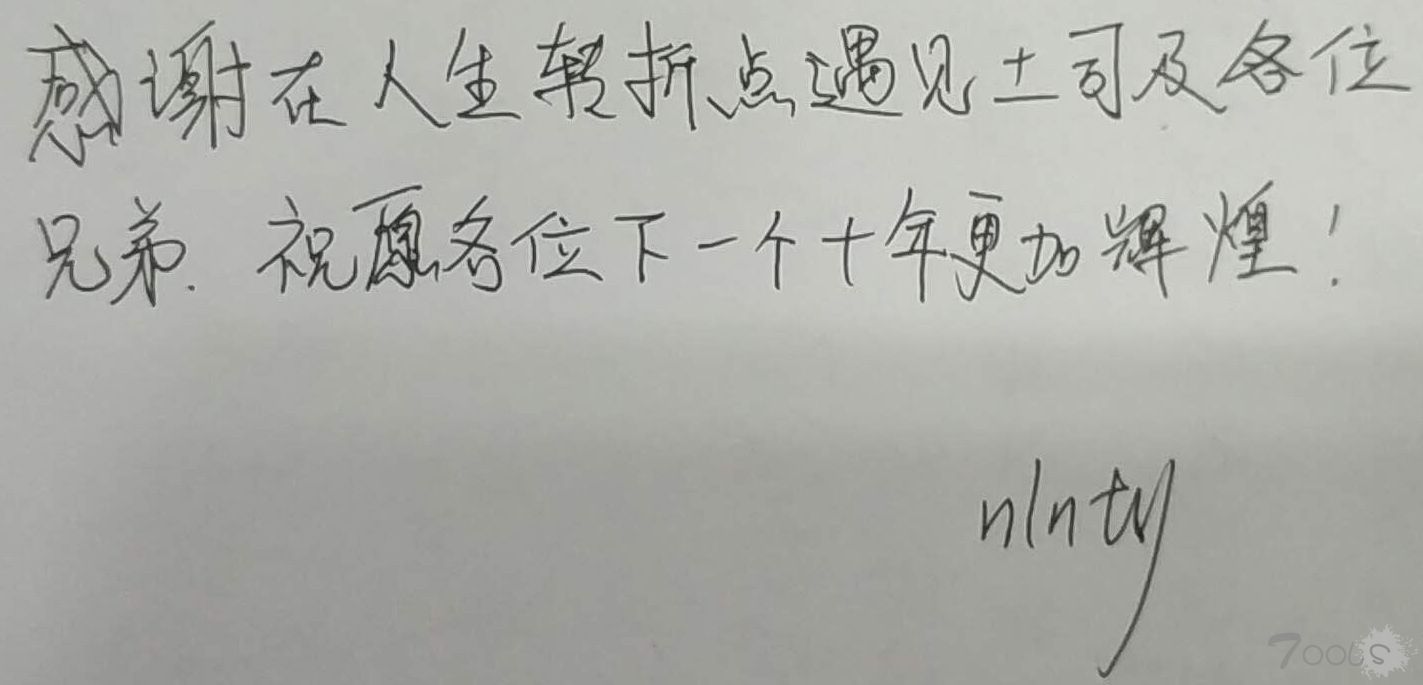 感谢在人生转折点遇见土司及各位
兄弟. 祝愿各位下一个十年更加辉煌!
n1nty
T00LS